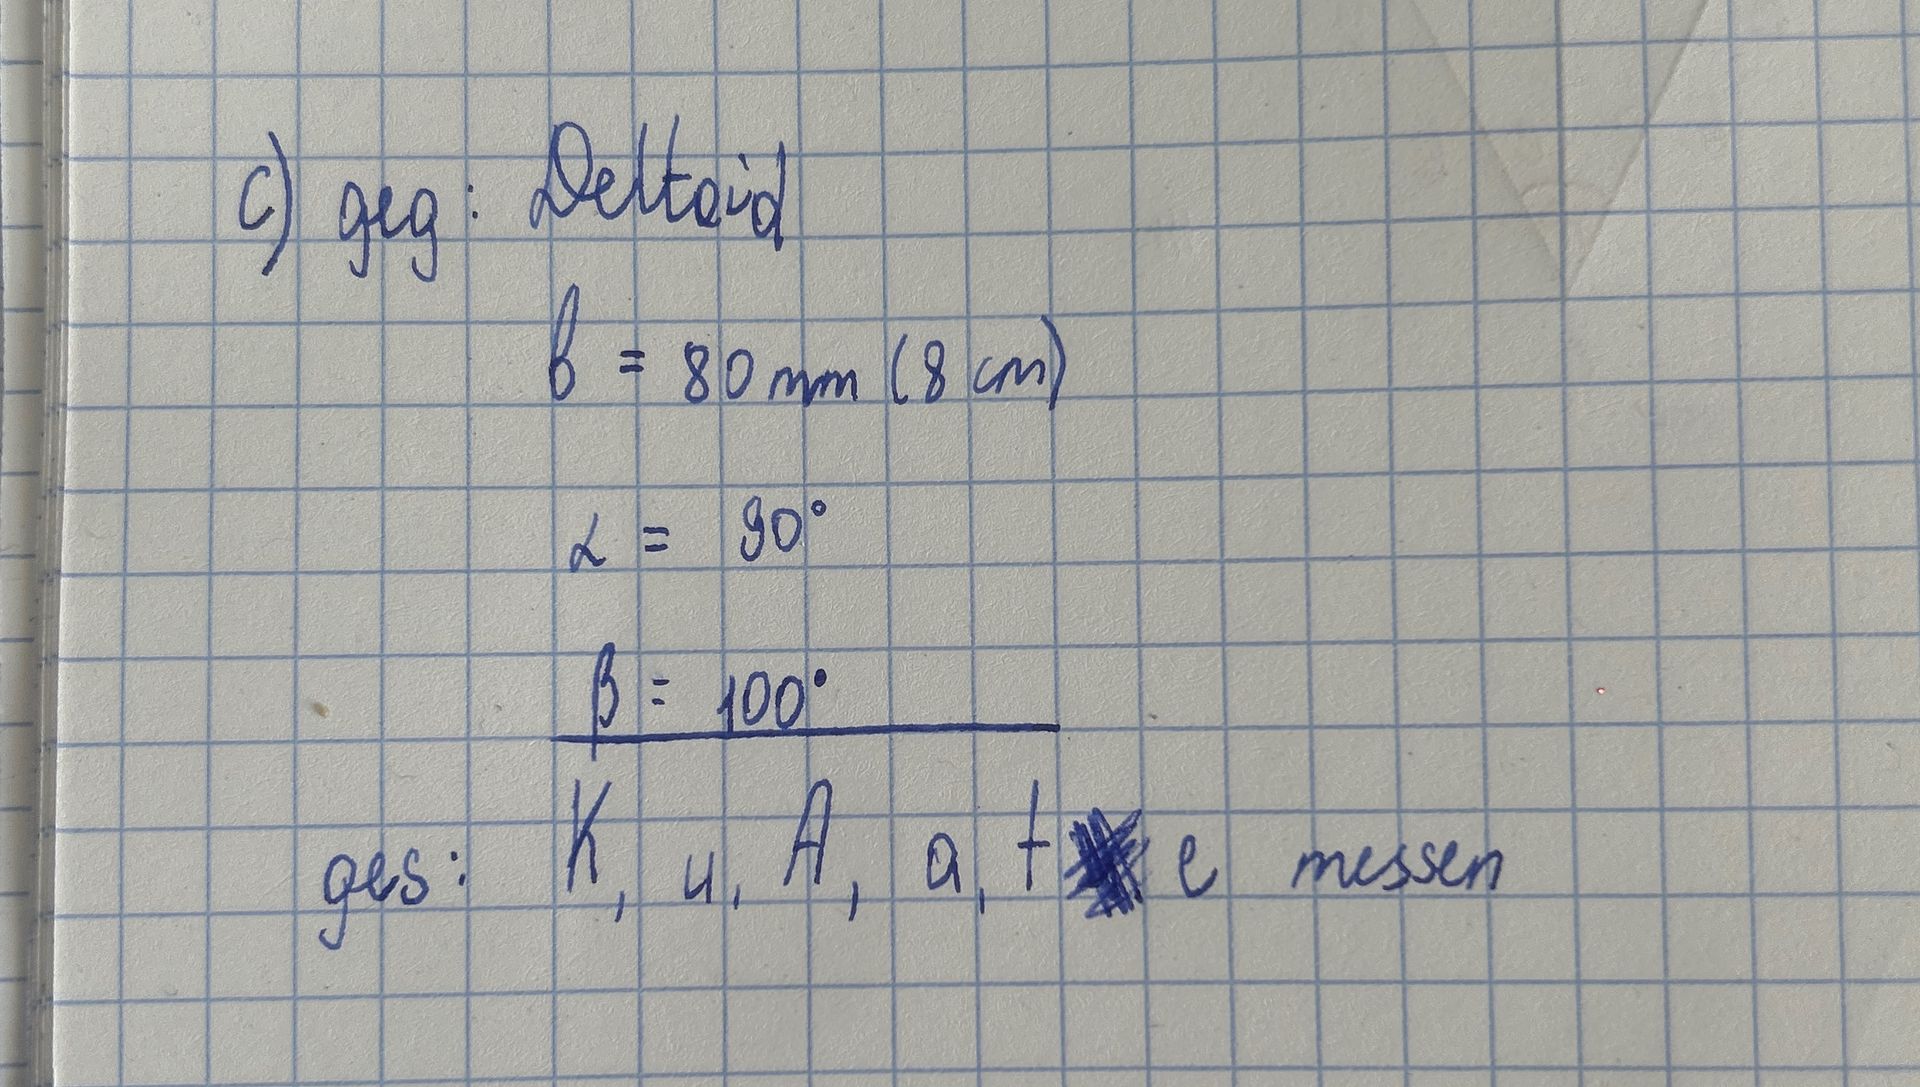 c) geg: Deltoid
b = 80 mm (8 cm)
α = 90°
β = 100°
ges: K, u, A, a, f e messen